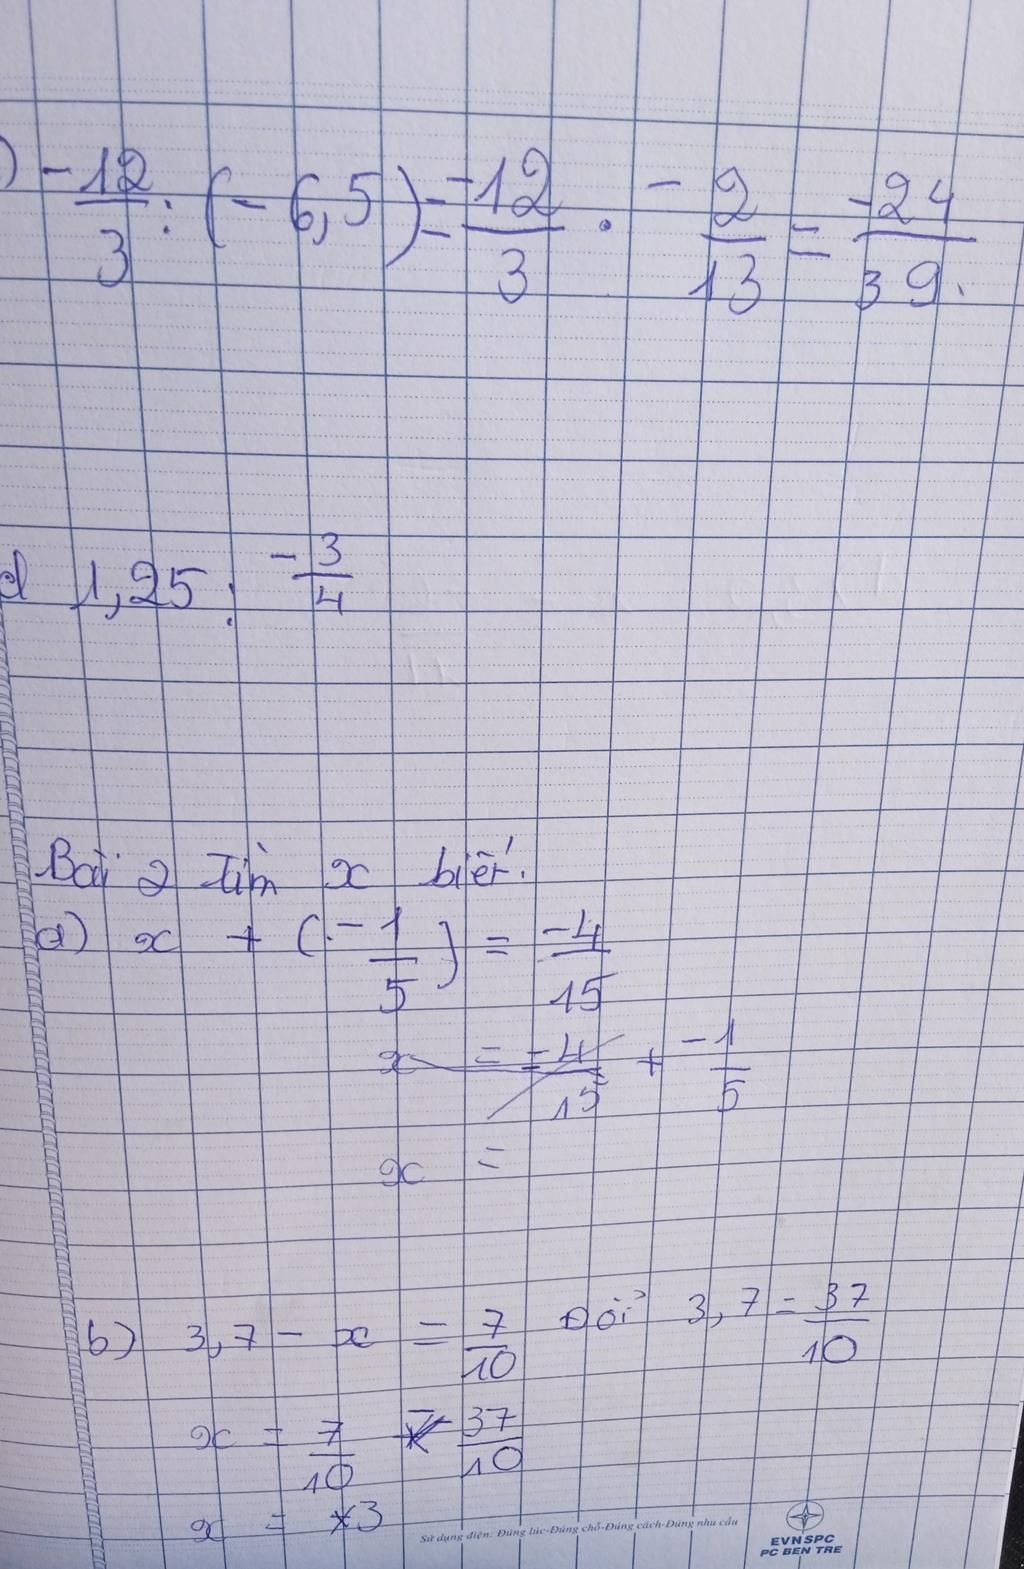 ) -12/3 : (-6,5) = -12/3 . -2/13 = -24/39.
d 1,25 : -3/4
Bài 2 Tìm x biết.
a) x + (-1/5) = -4/15
x = -4/15 + -1/5
x =
b) 3,7 - x = 7/10 Đổi 3,7 = 37/10
x = 7/10 - 37/10
x = 3
Sử dụng điện: Đúng lúc-Đúng chỗ-Đúng cách-Đúng nhu cầu
EVNSPC
PC BEN TRE